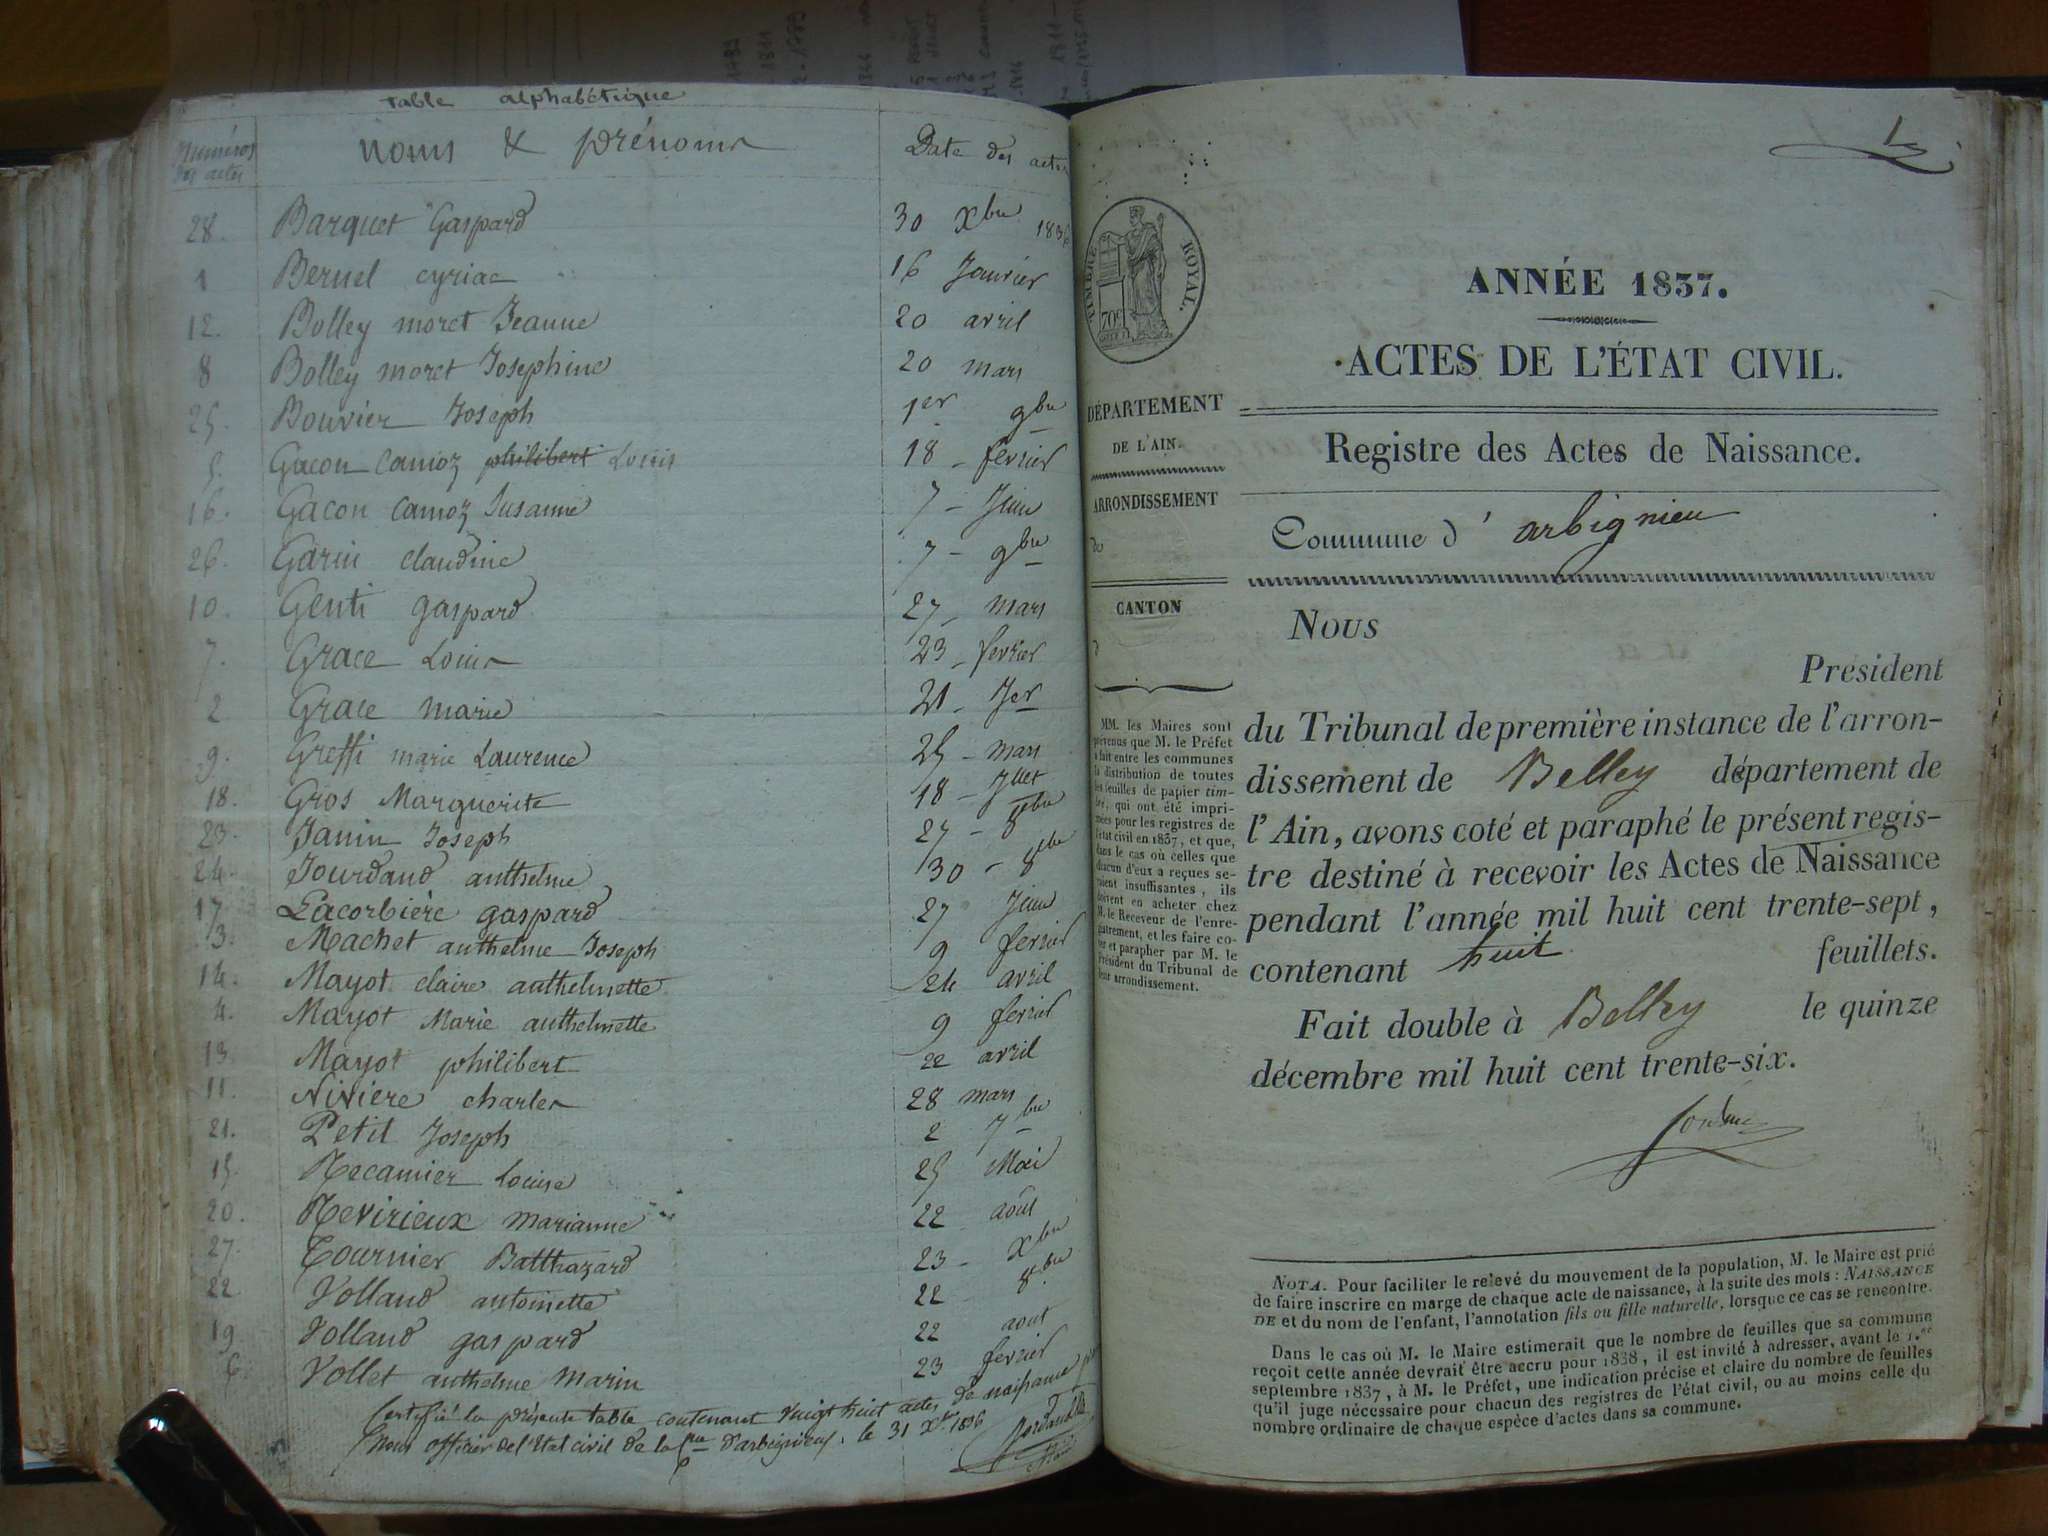 table alphabétique
Numéros des actes
noms & prénoms
Date des actes
28. Barquet Gaspard 30 Xbre 1836
1 Bernel cyriac 16 Janvier
12. Bolley moret Jeanne 20 avril
8 Bolley moret Josephine 20 mars
25. Bouvier Joseph 1er 9bre
5. Gacon Camoz philibert Louis 18 - fevrier
16. Gacon Camoz Susanne 7 - Juin
26. Garin claudine 7 - 9bre
10. Genti gaspard 27 - mars
7. Grace Louis 23 - fevrier
2 Grace marie 21 - Jer
9. Greffi marie Laurence 25 - mars
18. Gros Marguerite 18 - Jllet
23. Janin Joseph 27 - 8bre
24. Jourdand anthelme 30 - 8bre
17. Lacorbière gaspard 27 Juin
3. Machet anthelme Joseph 9 fevrier
14. Mayot claire anthelmette 24 avril
4. Mayot Marie anthelmette 9 fevrier
13 Mayot philibert 22 avril
11. Niviere charles 28 mars
21. Petit Joseph 2 7bre
15. Recamier Louise 25 Mai
20. Revirieux marianne 22 août
27. Tournier Balthazard 23 - Xbre
22 Volland antoinette 22 8bre
19 Volland gaspard 22 aout
6. Vollet anthelme Marin 23 fevrier
Certifié la présente table contenant vingt huit actes de naissance par
Nous officier de l'Etat civil de la Cne d'arbignieu. le 31 Xbre 1836
TIMBRE ROYAL.
70c
ANNÉE 1837.
ACTES DE L'ÉTAT CIVIL.
DÉPARTEMENT
DE L'AIN.
ARRONDISSEMENT
de
CANTON
d
MM. les Maires sont
prévenus que M. le Préfet
a fait entre les communes
la distribution de toutes
les feuilles de papier tim-
bré, qui ont été impri-
mées pour les registres de
l'état civil en 1837, et que,
dans le cas où celles que
chacun d'eux a reçues se-
raient insuffisantes, ils
doivent en acheter chez
M. le Receveur de l'enre-
gistrement, et les faire co-
ter et parapher par M. le
Président du Tribunal de
leur arrondissement.
Registre des Actes de Naissance.
Commune d' arbignieu
NOUS
Président
du Tribunal de première instance de l'arron-
dissement de Belley département de
l'Ain, avons coté et paraphé le présent regis-
tre destiné à recevoir les Actes de Naissance
pendant l'année mil huit cent trente-sept,
contenant huit feuillets.
Fait double à Belley le quinze
décembre mil huit cent trente-six.
NOTA. Pour faciliter le relevé du mouvement de la population, M. le Maire est prié
de faire inscrire en marge de chaque acte de naissance, à la suite des mots : NAISSANCE
DE et du nom de l'enfant, l'annotation fils ou fille naturelle, lorsque ce cas se rencontre.
Dans le cas où M. le Maire estimerait que le nombre de feuilles que sa commune
reçoit cette année devrait être accru pour 1838, il est invité à adresser, avant le 1.er
septembre 1837, à M. le Préfet, une indication précise et claire du nombre de feuilles
qu'il juge nécessaire pour chacun des registres de l'état civil, ou au moins celle du
nombre ordinaire de chaque espèce d'actes dans sa commune.